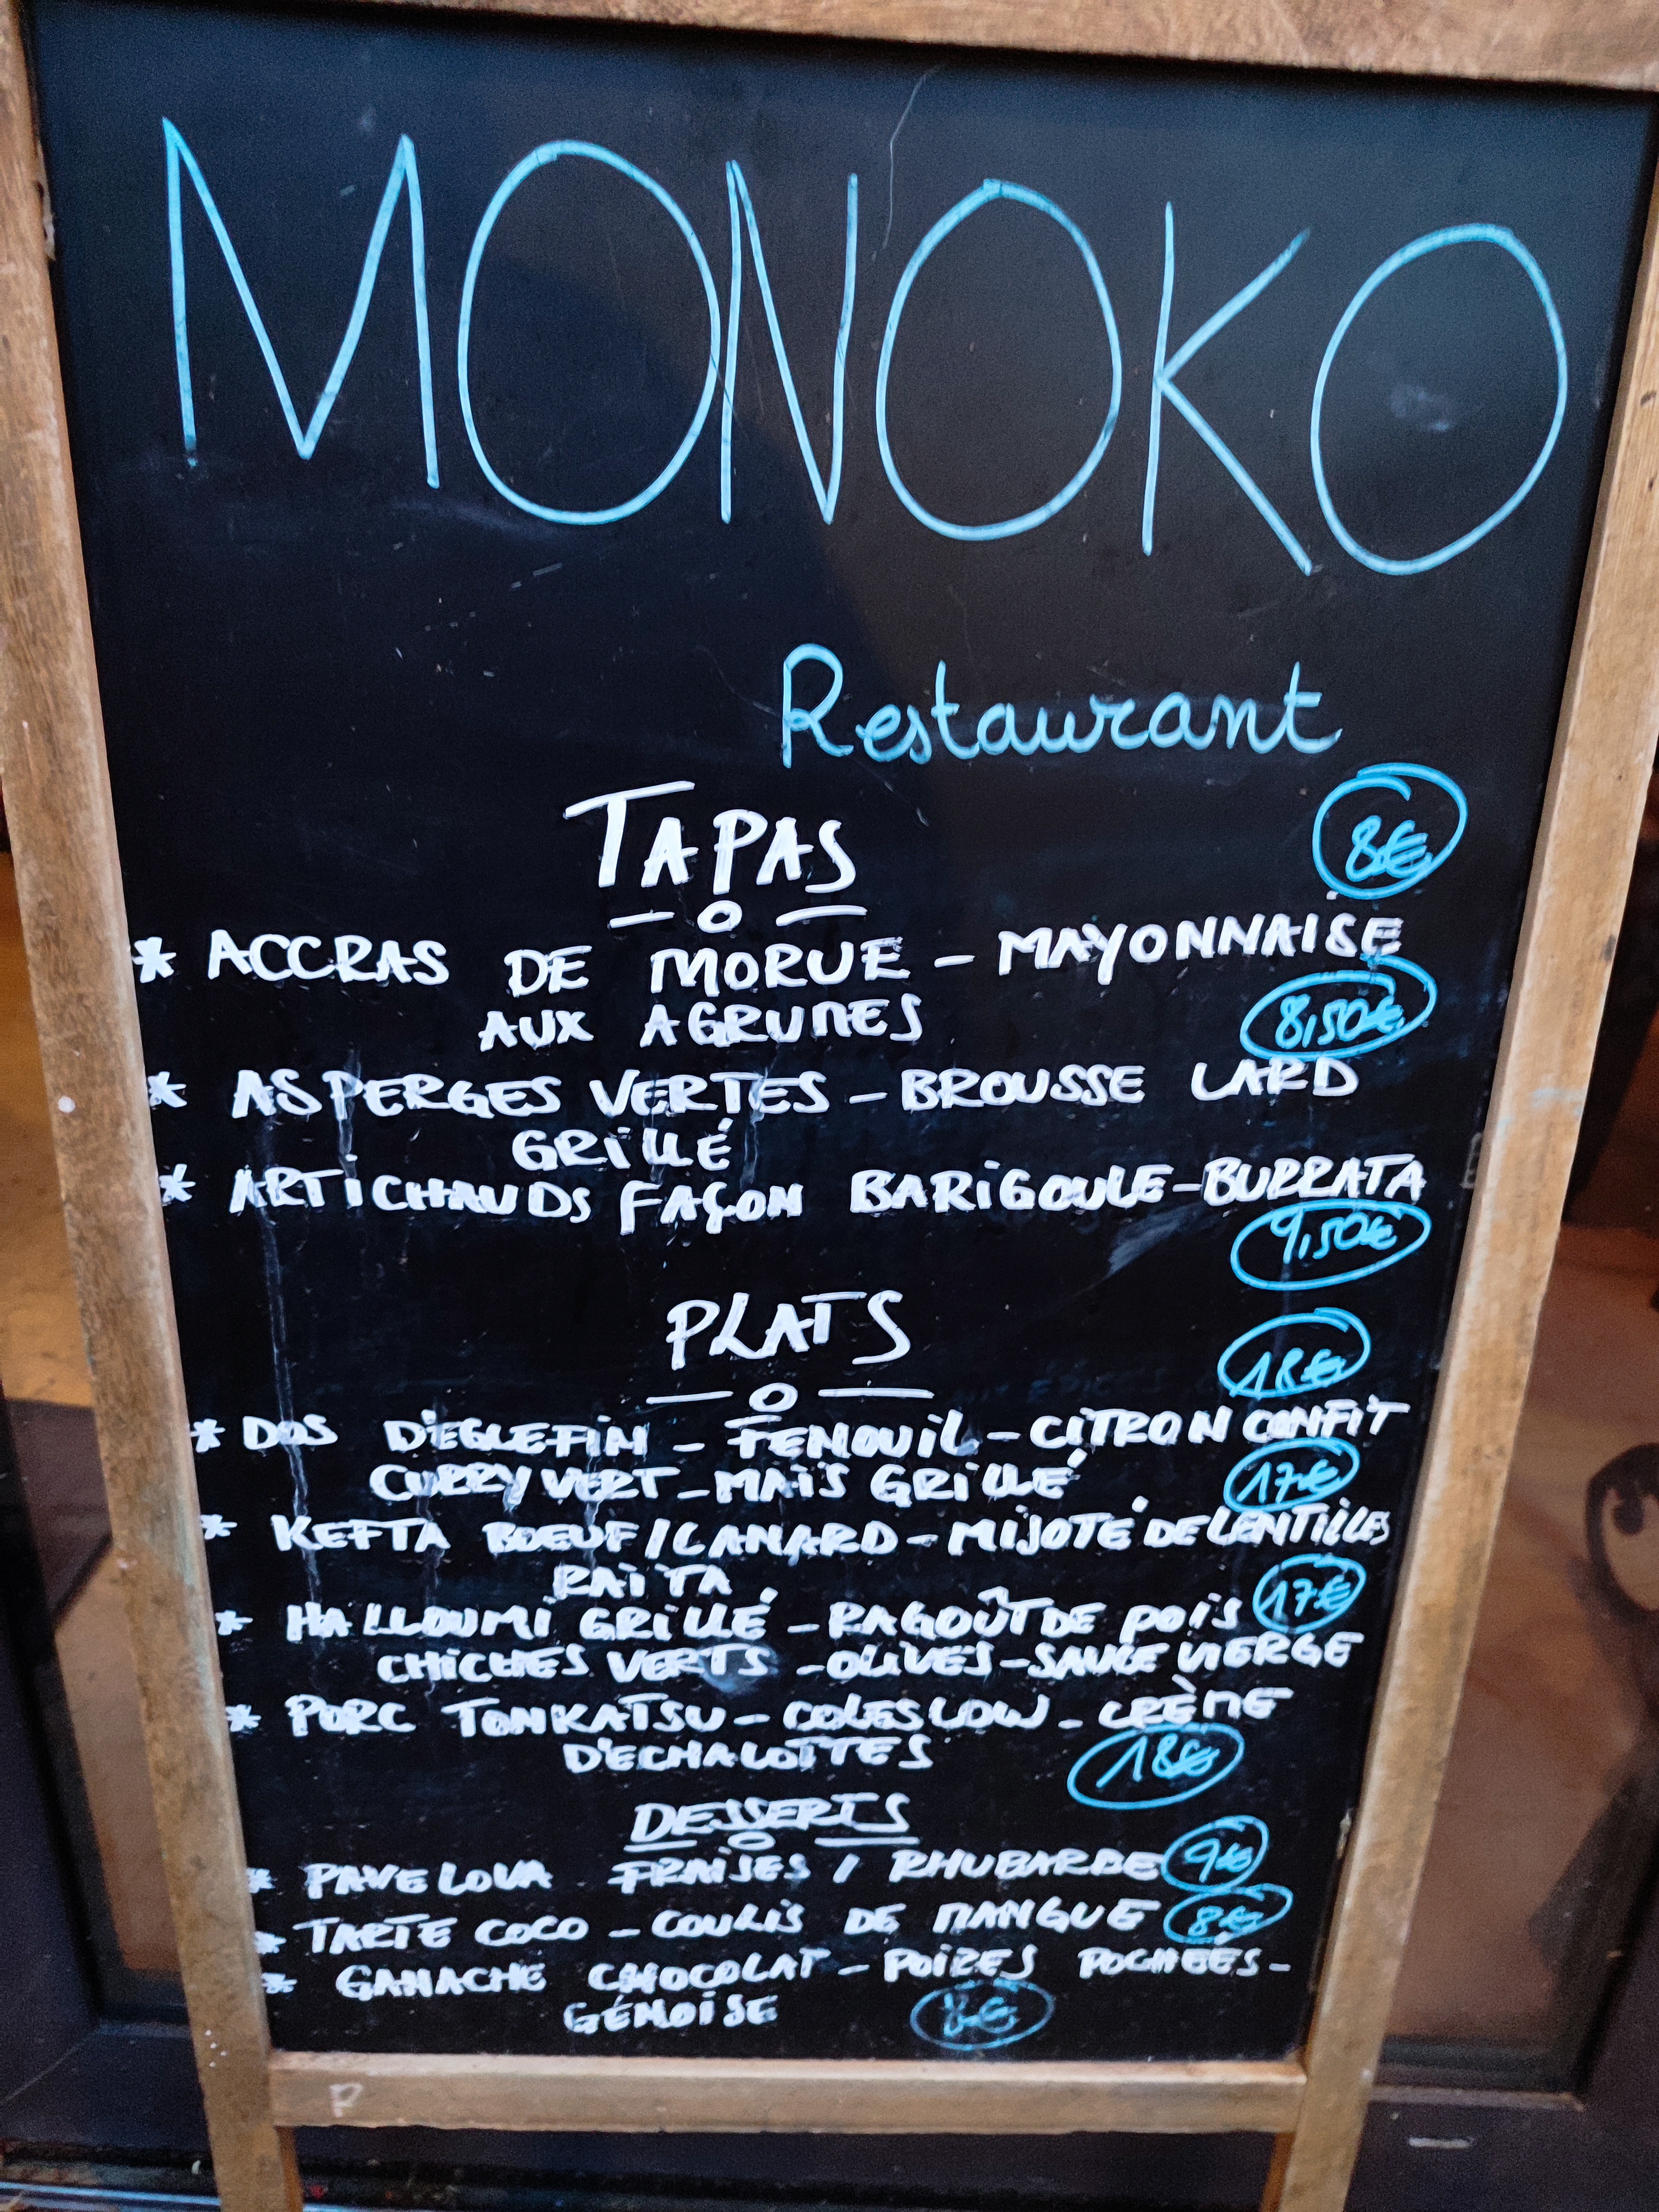 MONOKO
Restaurant
TAPAS
8€
* ACCRAS DE MORUE - MAYONNAISE
AUX AGRUMES
8,50€
* ASPERGES VERTES - BROUSSE LARD
GRILLÉ
* ARTICHAUDS FAÇON BARIGOULE - BURRATA
9,50€
PLATS
18€
* DOS D'EGLEFIN - FENOUIL - CITRON CONFIT
CURRY VERT - MAÏS GRILLÉ
17€
* KEFTA BOEUF / CANARD - MIJOTÉ DE LENTILLES
RAÏTA
* HALLOUMI GRILLÉ - RAGOÛT DE POIS
17€
CHICHES VERTS - OLIVES - SAUCE VIERGE
* PORC TONKATSU - COLESLOW - CRÈME
D'ECHALOTTES
18€
DESSERTS
* PAVELOVA FRAISES / RHUBARBE 9€
* TARTE COCO - COULIS DE MANGUE 8€
* GANACHE CHOCOLAT - POIRES POCHEÉS -
GÉNOISE 8€